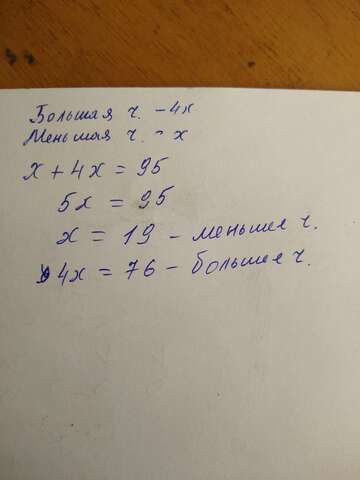 Большая ч. - 4x
Меньшая ч. - x
x + 4x = 95
5x = 95
x = 19 - меньшея ч.
4x = 76 - большея ч.